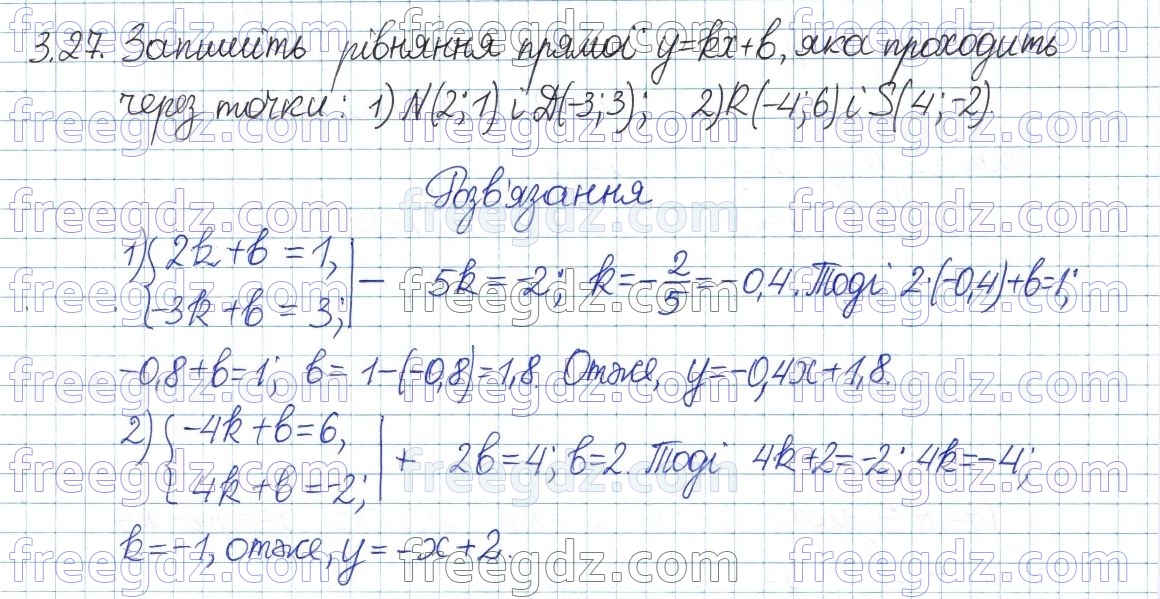 3.27. Запишіть рівняння прямої y=kx+b, яка проходить
через точки: 1) N(2;1) і D(-3;3); 2) R(-4;6) і S(4;-2).
Розв'язання
1) { 2k+b=1, -3k+b=3; | − 5k=-2; k=-2/5=-0,4. Тоді 2·(-0,4)+b=1;
-0,8+b=1; b= 1-(-0,8)=1,8. Отже, y=-0,4x+1,8.
2) { -4k+b=6, 4k+b=-2; | + 2b=4; b=2. Тоді 4k+2=-2; 4k=-4;
k=-1, отже, y=-x+2.
freegdz.com